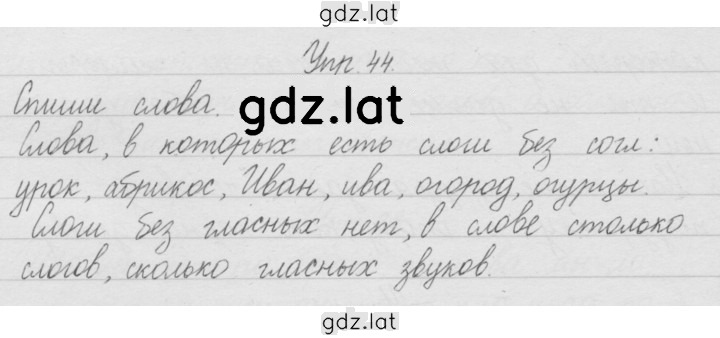 gdz.lat
Упр. 44.
Спиши слова.
gdz.lat
Слова, в которых есть слоги без согл:
урок, абрикос, Иван, ива, огород, огурцы.
Слоги без гласных нет, в слове столько
слогов, сколько гласных звуков.
gdz.lat